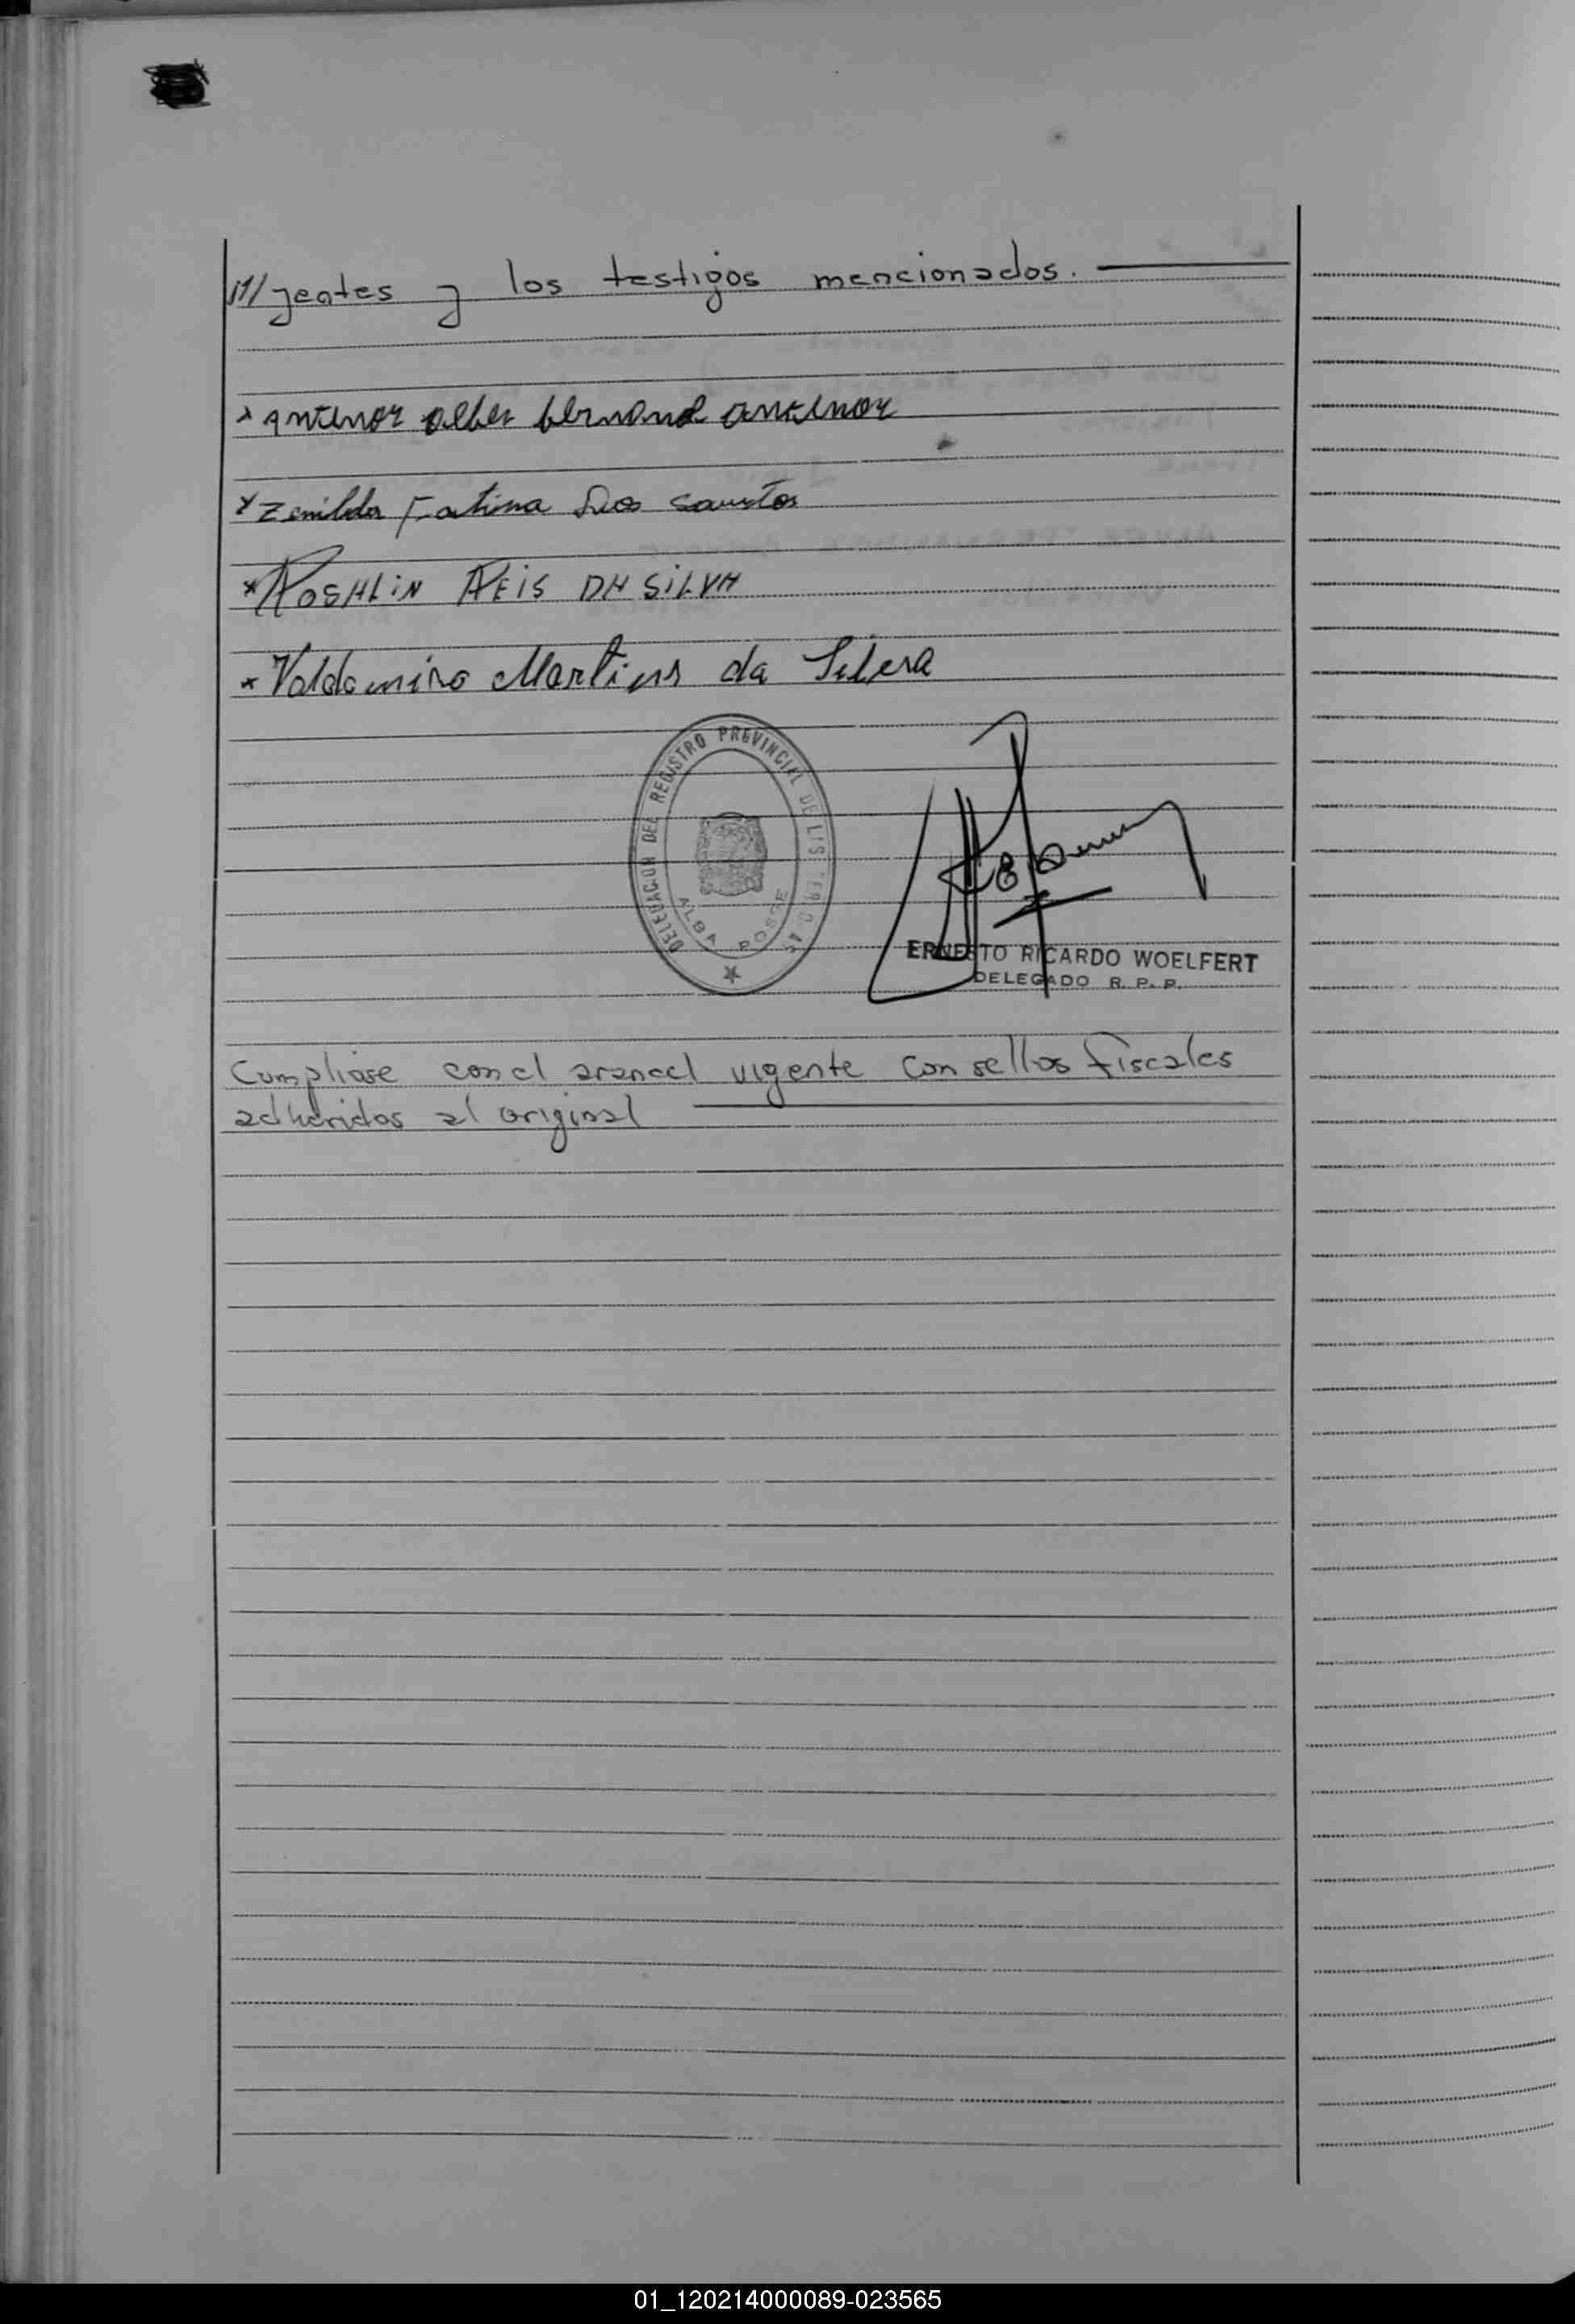 11/yentes y los testigos mencionados.
* antenor
* Zenilda Fatima Dos Santos
* ROSALiN REiS DA SiLVA
* Valdomiro Martins da
DELEGACION DEL REGISTRO PROVINCIAL DE LAS PERSONAS
ALBA POSSE
ERNESTO RICARDO WOELFERT
DELEGADO R. P. P.
Cumpliose con el arancel vigente con sellos fiscales
adheridos al original
01_120214000089-023565